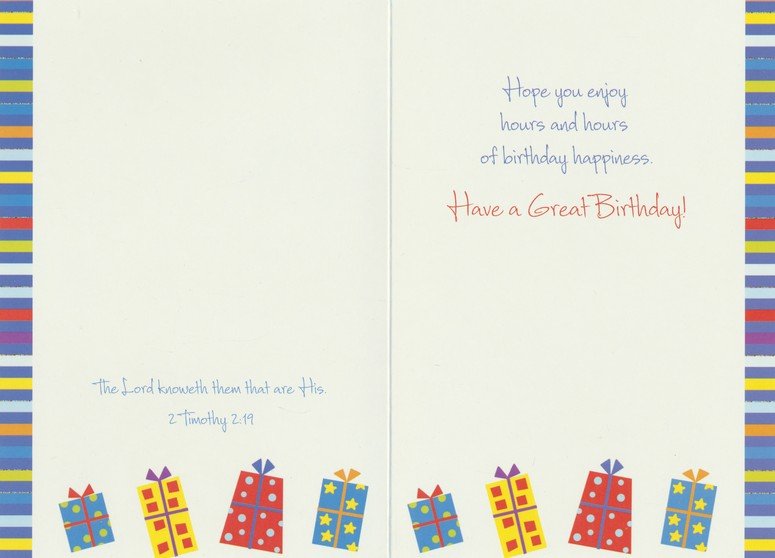 The Lord knoweth them that are His.
2 Timothy 2:19
Hope you enjoy
hours and hours
of birthday happiness.
Have a Great Birthday!